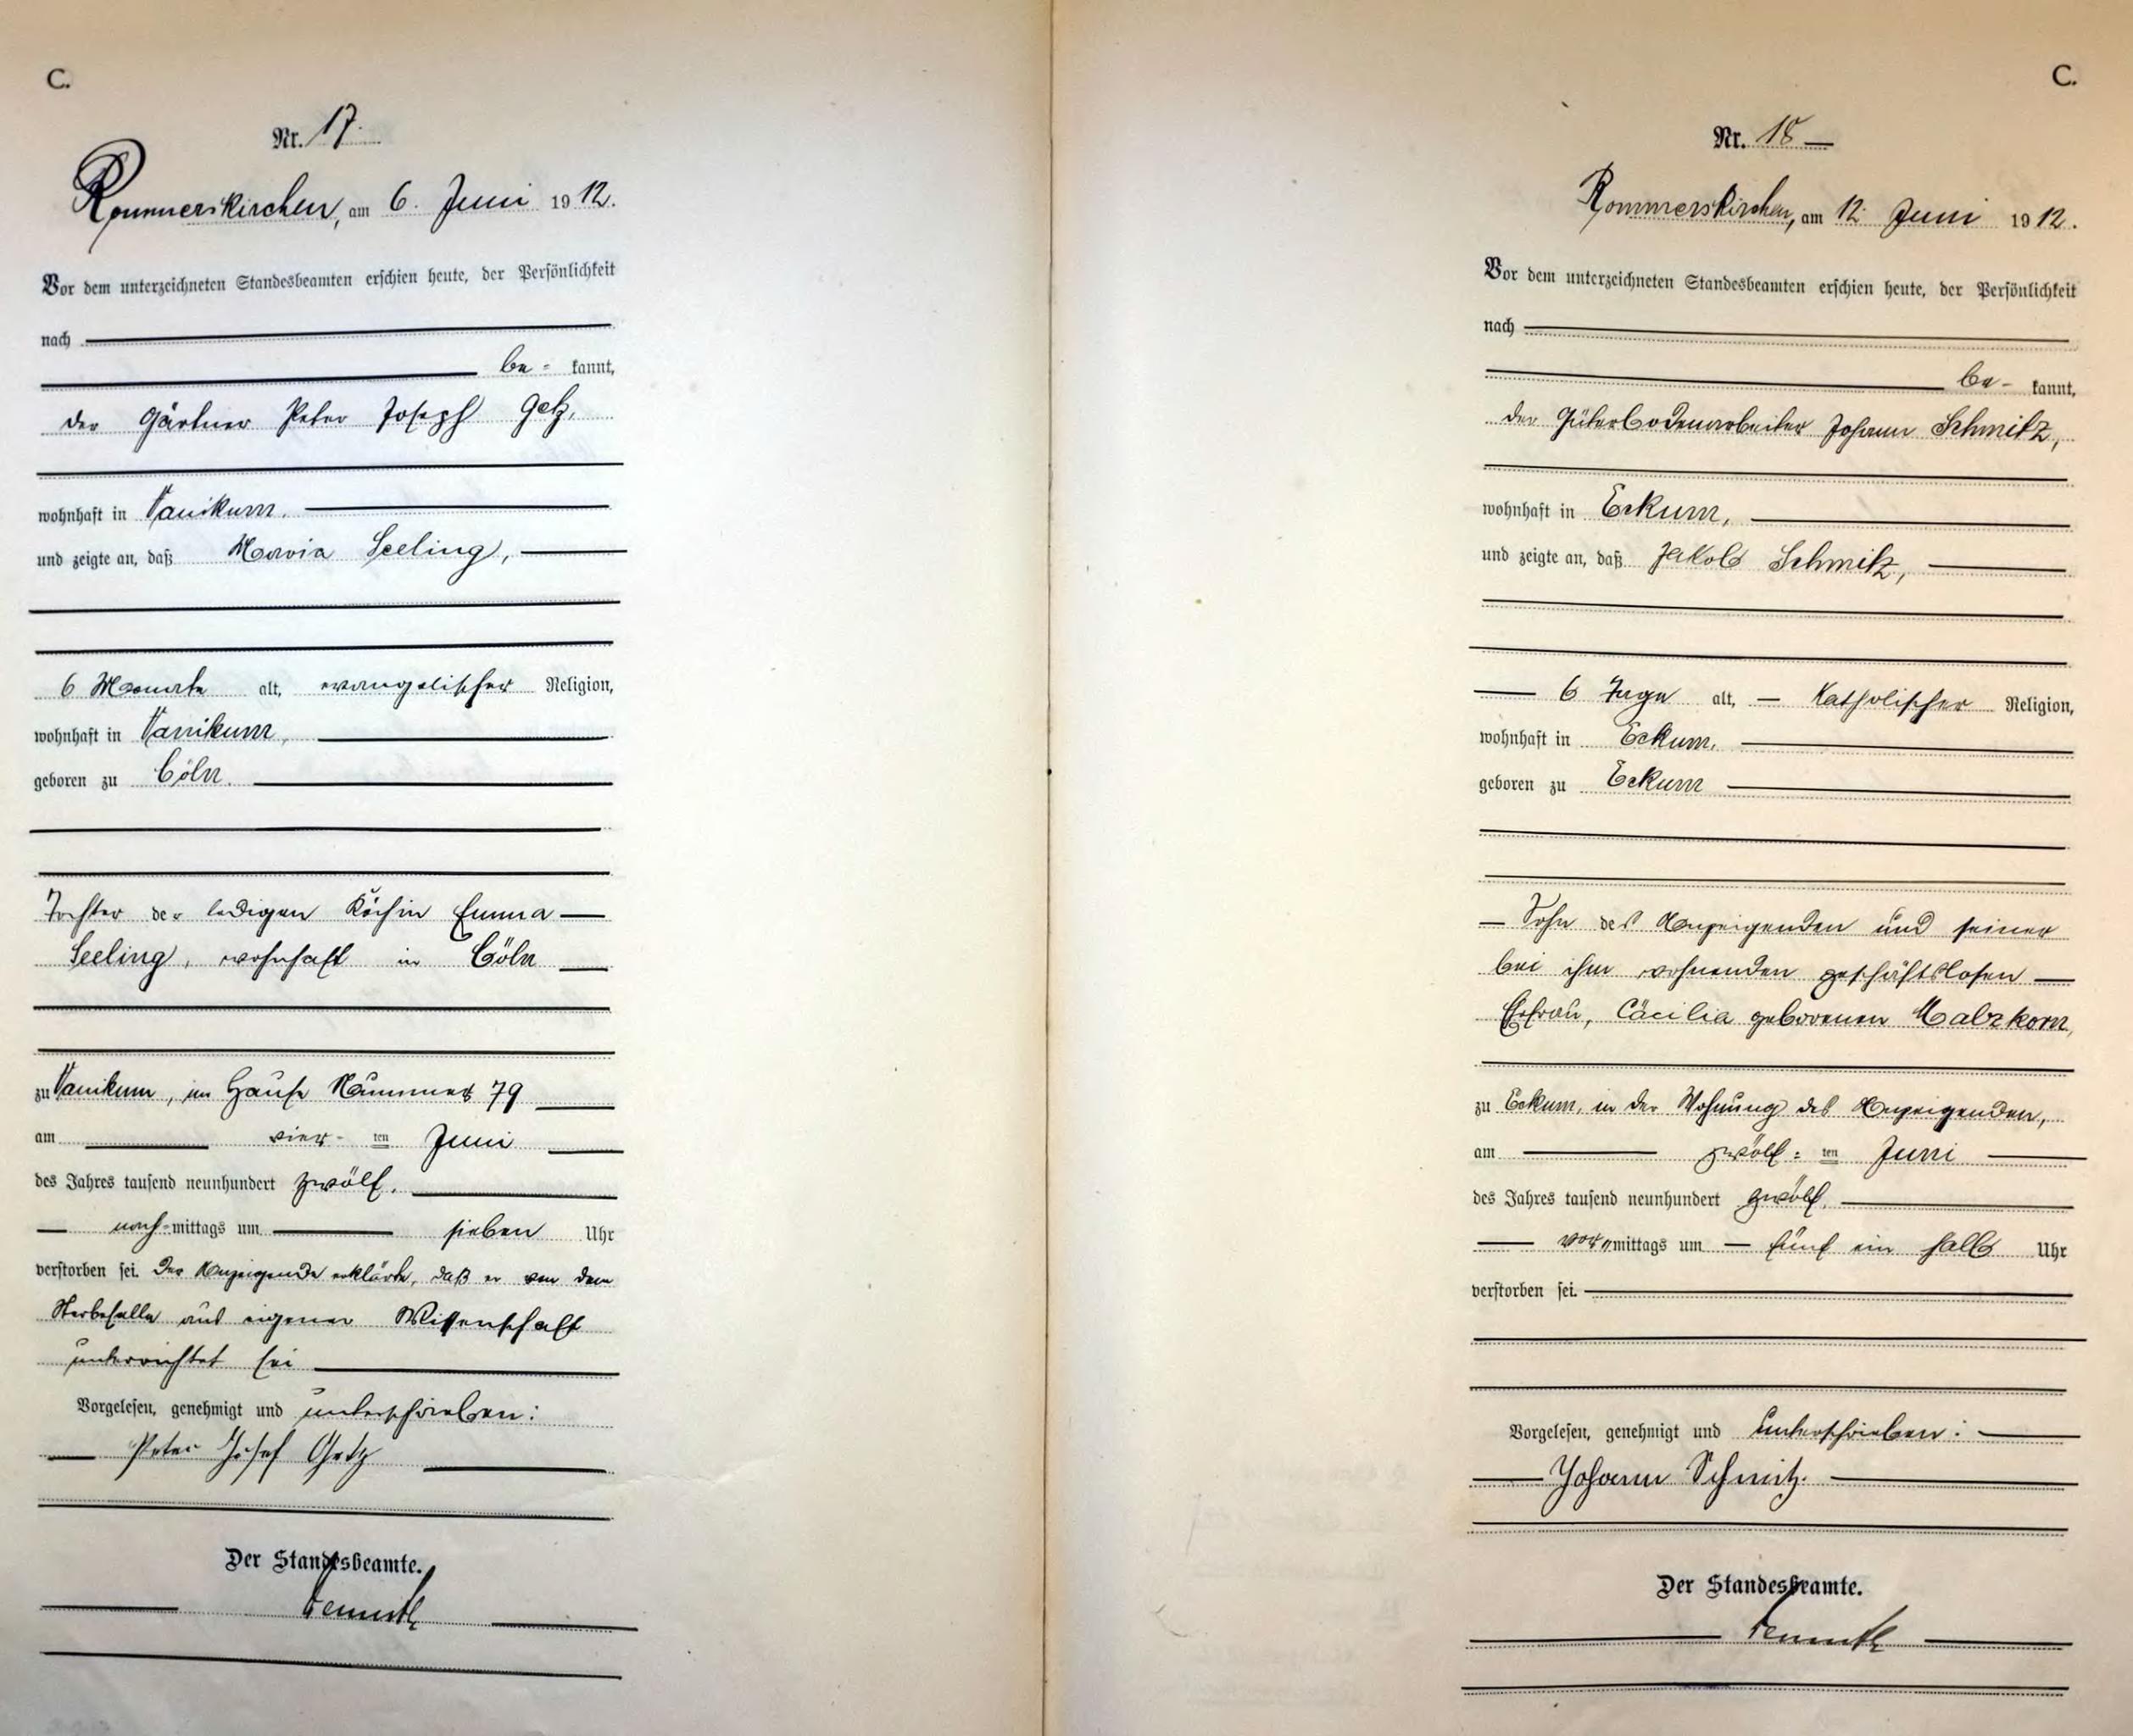 C.
Nr. 17.
Rommerskirchen, am 6. Juni 1912.
Vor dem unterzeichneten Standesbeamten erschien heute, der Persönlichkeit
nach
be- kannt,
der Gärtner Peter Joseph Getz,
wohnhaft in Vanikum.
und zeigte an, daß Maria Seeling,
6 Monate alt, evangelischer Religion,
wohnhaft in Vanikum,
geboren zu Cöln.
Tochter der ledigen Köchin Emma
Seeling, wohnhaft in Cöln
zu Vanikum, im Hause Nummer 79
am vier- ten Juni
des Jahres tausend neunhundert zwölf.
nach-mittags um sieben Uhr
verstorben sei. Der Anzeigende erklärte, daß er von dem
Sterbefalle aus eigener Wissenschaft
unterrichtet sei
Vorgelesen, genehmigt und unterschrieben:
Peter Josef Getz
Der Standesbeamte.
C.
Nr. 18
Rommerskirchen, am 12. Juni 1912.
Vor dem unterzeichneten Standesbeamten erschien heute, der Persönlichkeit
nach
be- kannt,
der Güterbodenarbeiter Johann Schmitz,
wohnhaft in Eckum,
und zeigte an, daß Jakob Schmitz,
6 Tage alt, Katholischer Religion,
wohnhaft in Eckum,
geboren zu Eckum
Sohn des Anzeigenden und seiner
bei ihm wohnenden geschäftslosen
Ehefrau, Cäcilia geborenen Malzkorn,
zu Eckum, in der Wohnung des Anzeigenden,
am zwölf= ten Juni
des Jahres tausend neunhundert zwölf,
vor mittags um fünf ein halb Uhr
verstorben sei.
Vorgelesen, genehmigt und unterschrieben:
Johann Schmitz.
Der Standesbeamte.